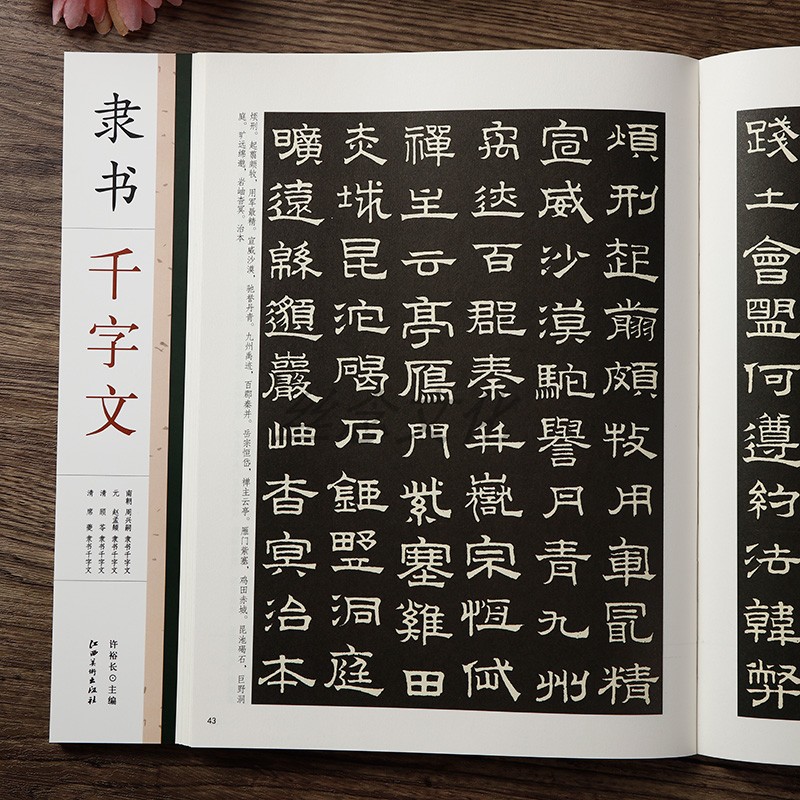 隶书
千字文
南朝 周兴嗣 隶书千字文
元 赵孟頫 隶书千字文
清 顾苓 隶书千字文
清 席夔 隶书千字文
许裕长⊙主编
江西美术出版社
踐土會盟何遵約法韓弊
煩刑起翦頗牧用軍最精
宣威沙漠馳譽丹青九州
禹迹百郡秦并嶽宗恆岱
禪主云亭鴈門紫塞雞田
赤城昆池碣石鉅野洞庭
曠遠緜邈巖岫杳冥治本
烦刑。起翦颇牧，用军最精。宣威沙漠，驰誉丹青。九州禹迹，百郡秦并。岳宗恒岱，禅主云亭。雁门紫塞，鸡田赤城。昆池碣石，巨野洞
庭。旷远绵邈，岩岫杳冥。治本
43